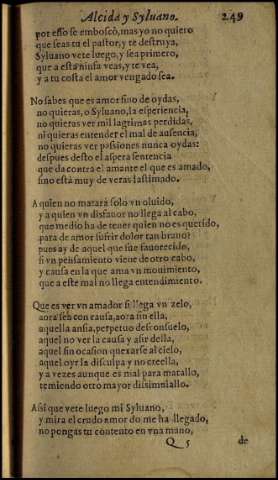 Alcida y Syluano. 249
por esso se emboscò, mas yo no quiero
que seas tu el pastor, y te destruya,
Syluano vete luego, y sea primero,
que a esta ninfa veas, y te vea,
y a tu costa el amor vengado sea.
No sabes que es amor sino de oydas,
no quieras, o Syluano, la esperiencia,
no quieras ver mil lagrimas perdidas,
ni quieras entender el mal de ausencia,
no quieras ver passiones nunca oydas:
despues desto el aspera sentencia
que da contra el amante el que es amado,
sino està muy de veras lastimado.
A quien no matarà solo vn oluido,
y a quien vn disfauor no llega al cabo,
que medio ha de tener quien no es querido,
para de amor sufrir dolor tan brauo?
pues ay de aquel que fue fauorecido,
si vn pensamiento viene de otro cabo,
y causa en la que ama vn mouimiento,
que a este mal no llega entendimiento.
Que es ver vn amador si llega vn zelo,
aora sea con causa, aora sin ella,
aquella ansia, perpetuo desconsuelo,
aquel no ver la causa y asir della,
aquel sin ocasion quexarse al cielo,
aquel oyr la disculpa y no creella,
y a vezes aunque es mal para matallo,
temiendo otro mayor dissimulallo.
Assi que vete luego mi Syluano,
y mira el crudo amor do me ha llegado,
no pongas tu contento en vna mano,
Q 5 de